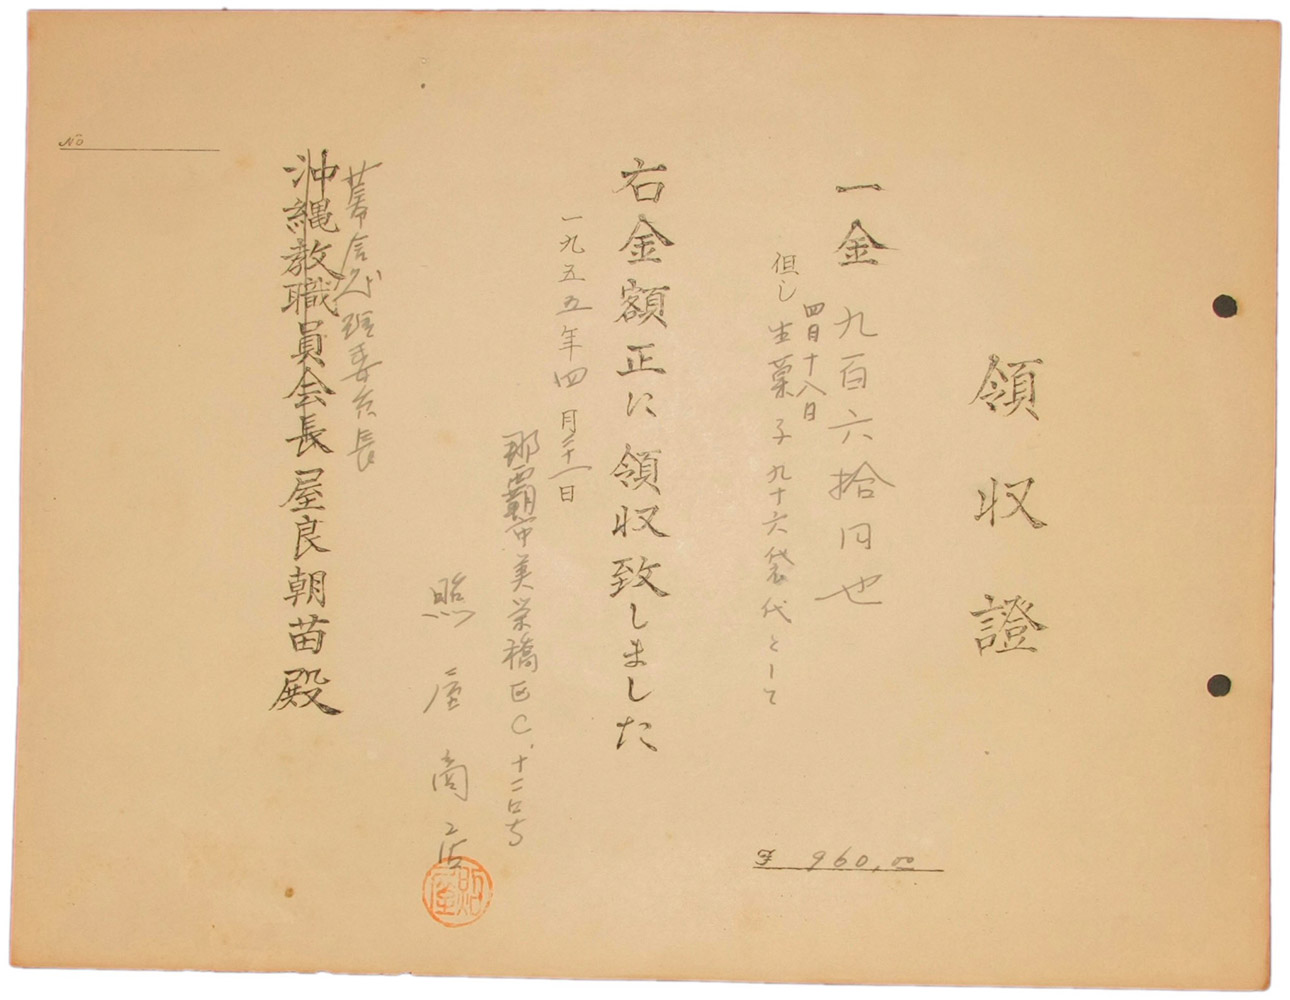 領収證
一金九百六拾円也
四月十八日
但し生菓子九十六袋代として
¥ 960.00
右金額正に領収致しました
一九五五年四月二十一日
那覇市美栄橋区C、十二口号
照屋商店
照屋
委員長
沖縄教職員会長屋良朝苗殿
No